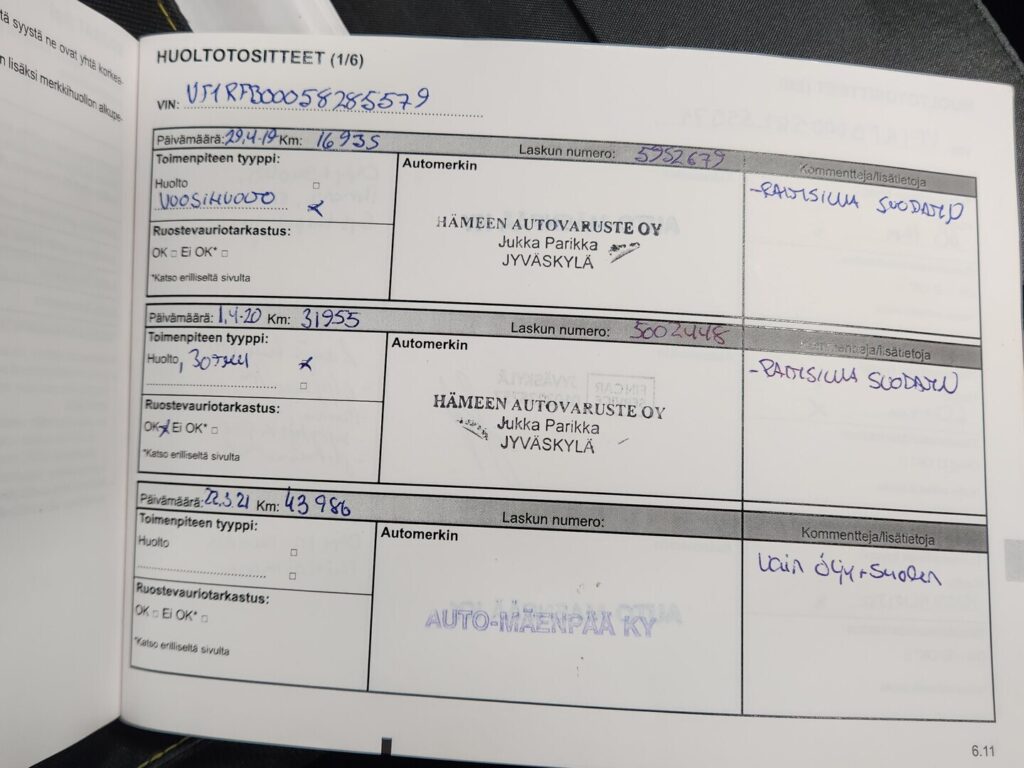 tä syystä ne ovat yhtä korkea-
n lisäksi merkkihuollon alkupe-
HUOLTOTOSITTEET (1/6)
VIN: VF1RFB00058285579
Päivämäärä: 29.4-19 Km: 16935 Laskun numero: 5952679
Toimenpiteen tyyppi:
Huolto
VUOSIHUOLTO
Ruostevauriotarkastus:
OK Ei OK*
*Katso erilliseltä sivulta
Automerkin
HÄMEEN AUTOVARUSTE OY
Jukka Parikka
JYVÄSKYLÄ
Kommentteja/lisätietoja
-RAITISILMA SUODATIN
Päivämäärä: 1.4-20 Km: 31955 Laskun numero: 5002448
Toimenpiteen tyyppi:
Huolto, 30TKM
Ruostevauriotarkastus:
OK Ei OK*
*Katso erilliseltä sivulta
Automerkin
HÄMEEN AUTOVARUSTE OY
Jukka Parikka
JYVÄSKYLÄ
Kommentteja/lisätietoja
-RAITISILMA SUODATIN
Päivämäärä: 22.3.21 Km: 43986 Laskun numero:
Toimenpiteen tyyppi:
Huolto
Ruostevauriotarkastus:
OK Ei OK*
*Katso erilliseltä sivulta
Automerkin
AUTO-MÄENPÄÄ KY
Kommentteja/lisätietoja
Vain öljy + suodin
6.11